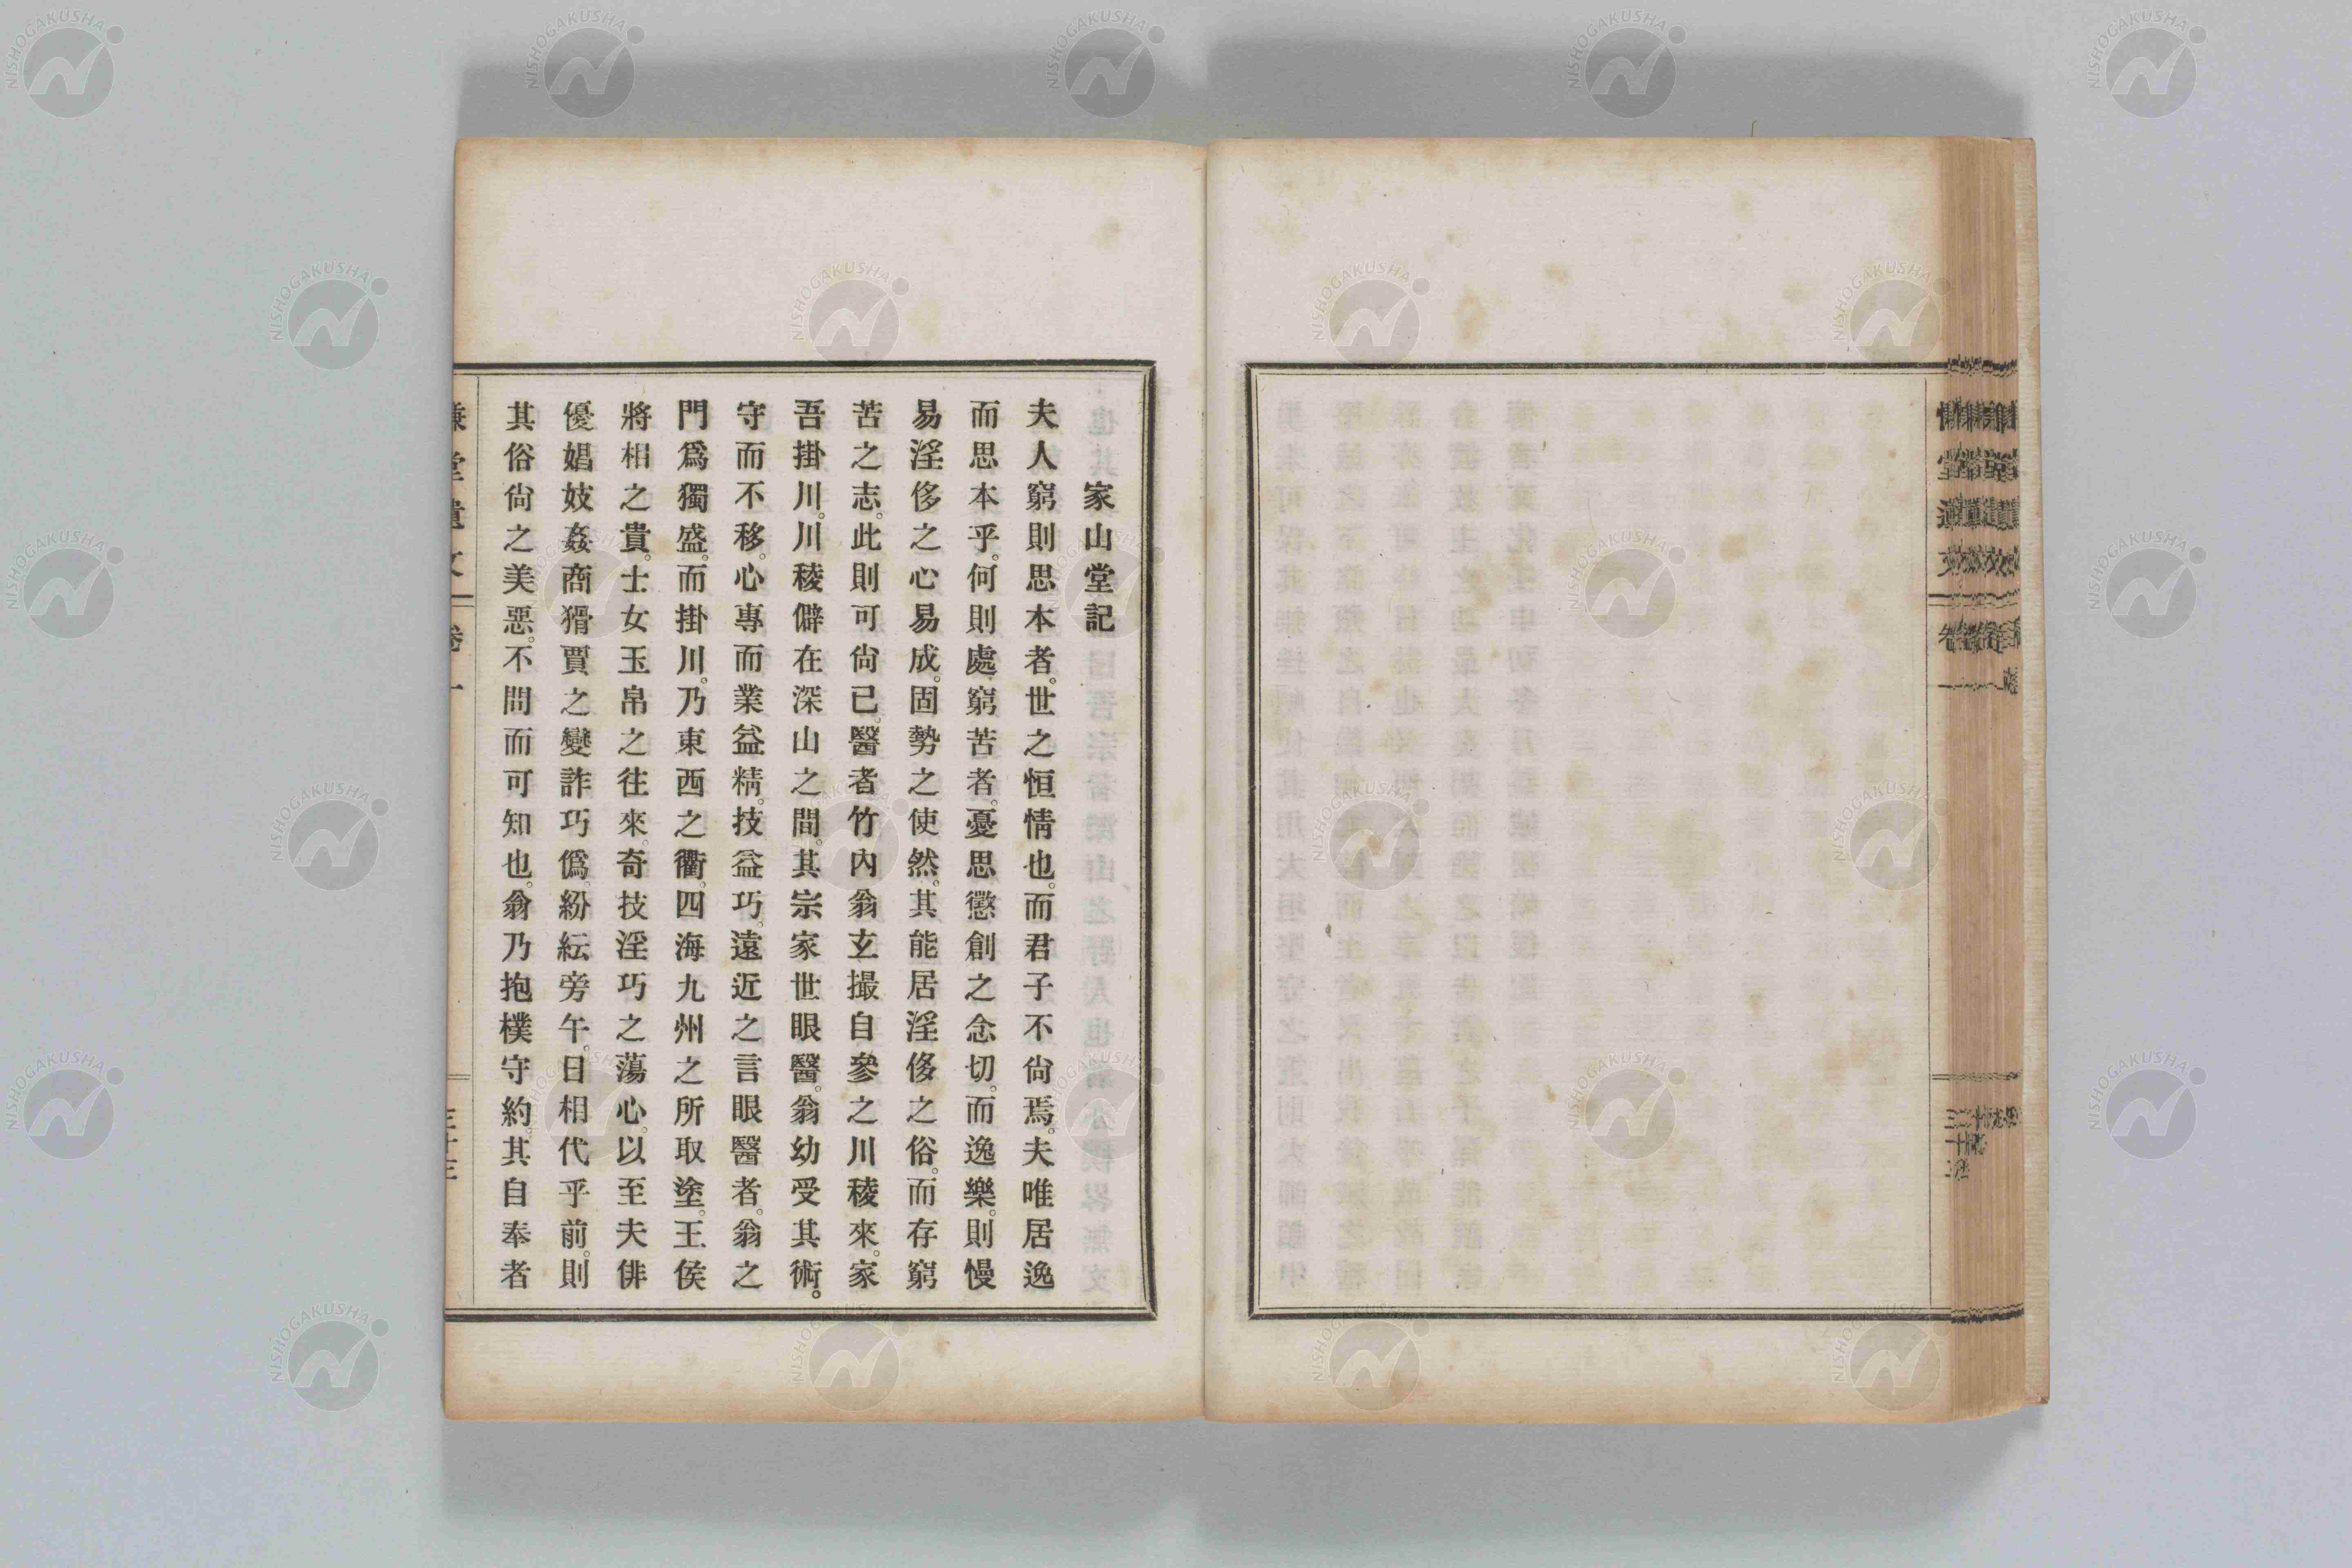 家山堂記
夫人窮則思本者。世之恒情也。而君子不尙焉。夫唯居逸
而思本乎。何則處窮苦者。憂思懲創之念切。而逸樂。則慢
易淫侈之心易成。固勢之使然。其能居淫侈之俗。而存窮
苦之志。此則可尙已。醫者竹內翁玄撮自參之川稜來。家
吾掛川。川稜僻在深山之間。其宗家世眼醫。翁幼受其術。
守而不移。心專而業益精。技益巧。遠近之言眼醫者。翁之
門爲獨盛。而掛川。乃東西之衢。四海九州之所取塗。王侯
將相之貴。士女玉帛之往來。奇技淫巧之蕩心。以至夫俳
優娼妓姦商猾賈之變詐巧僞。紛紜旁午。日相代乎前。則
其俗尙之美惡。不問而可知也。翁乃抱樸守約其自奉者
NISHOGAKUSHA